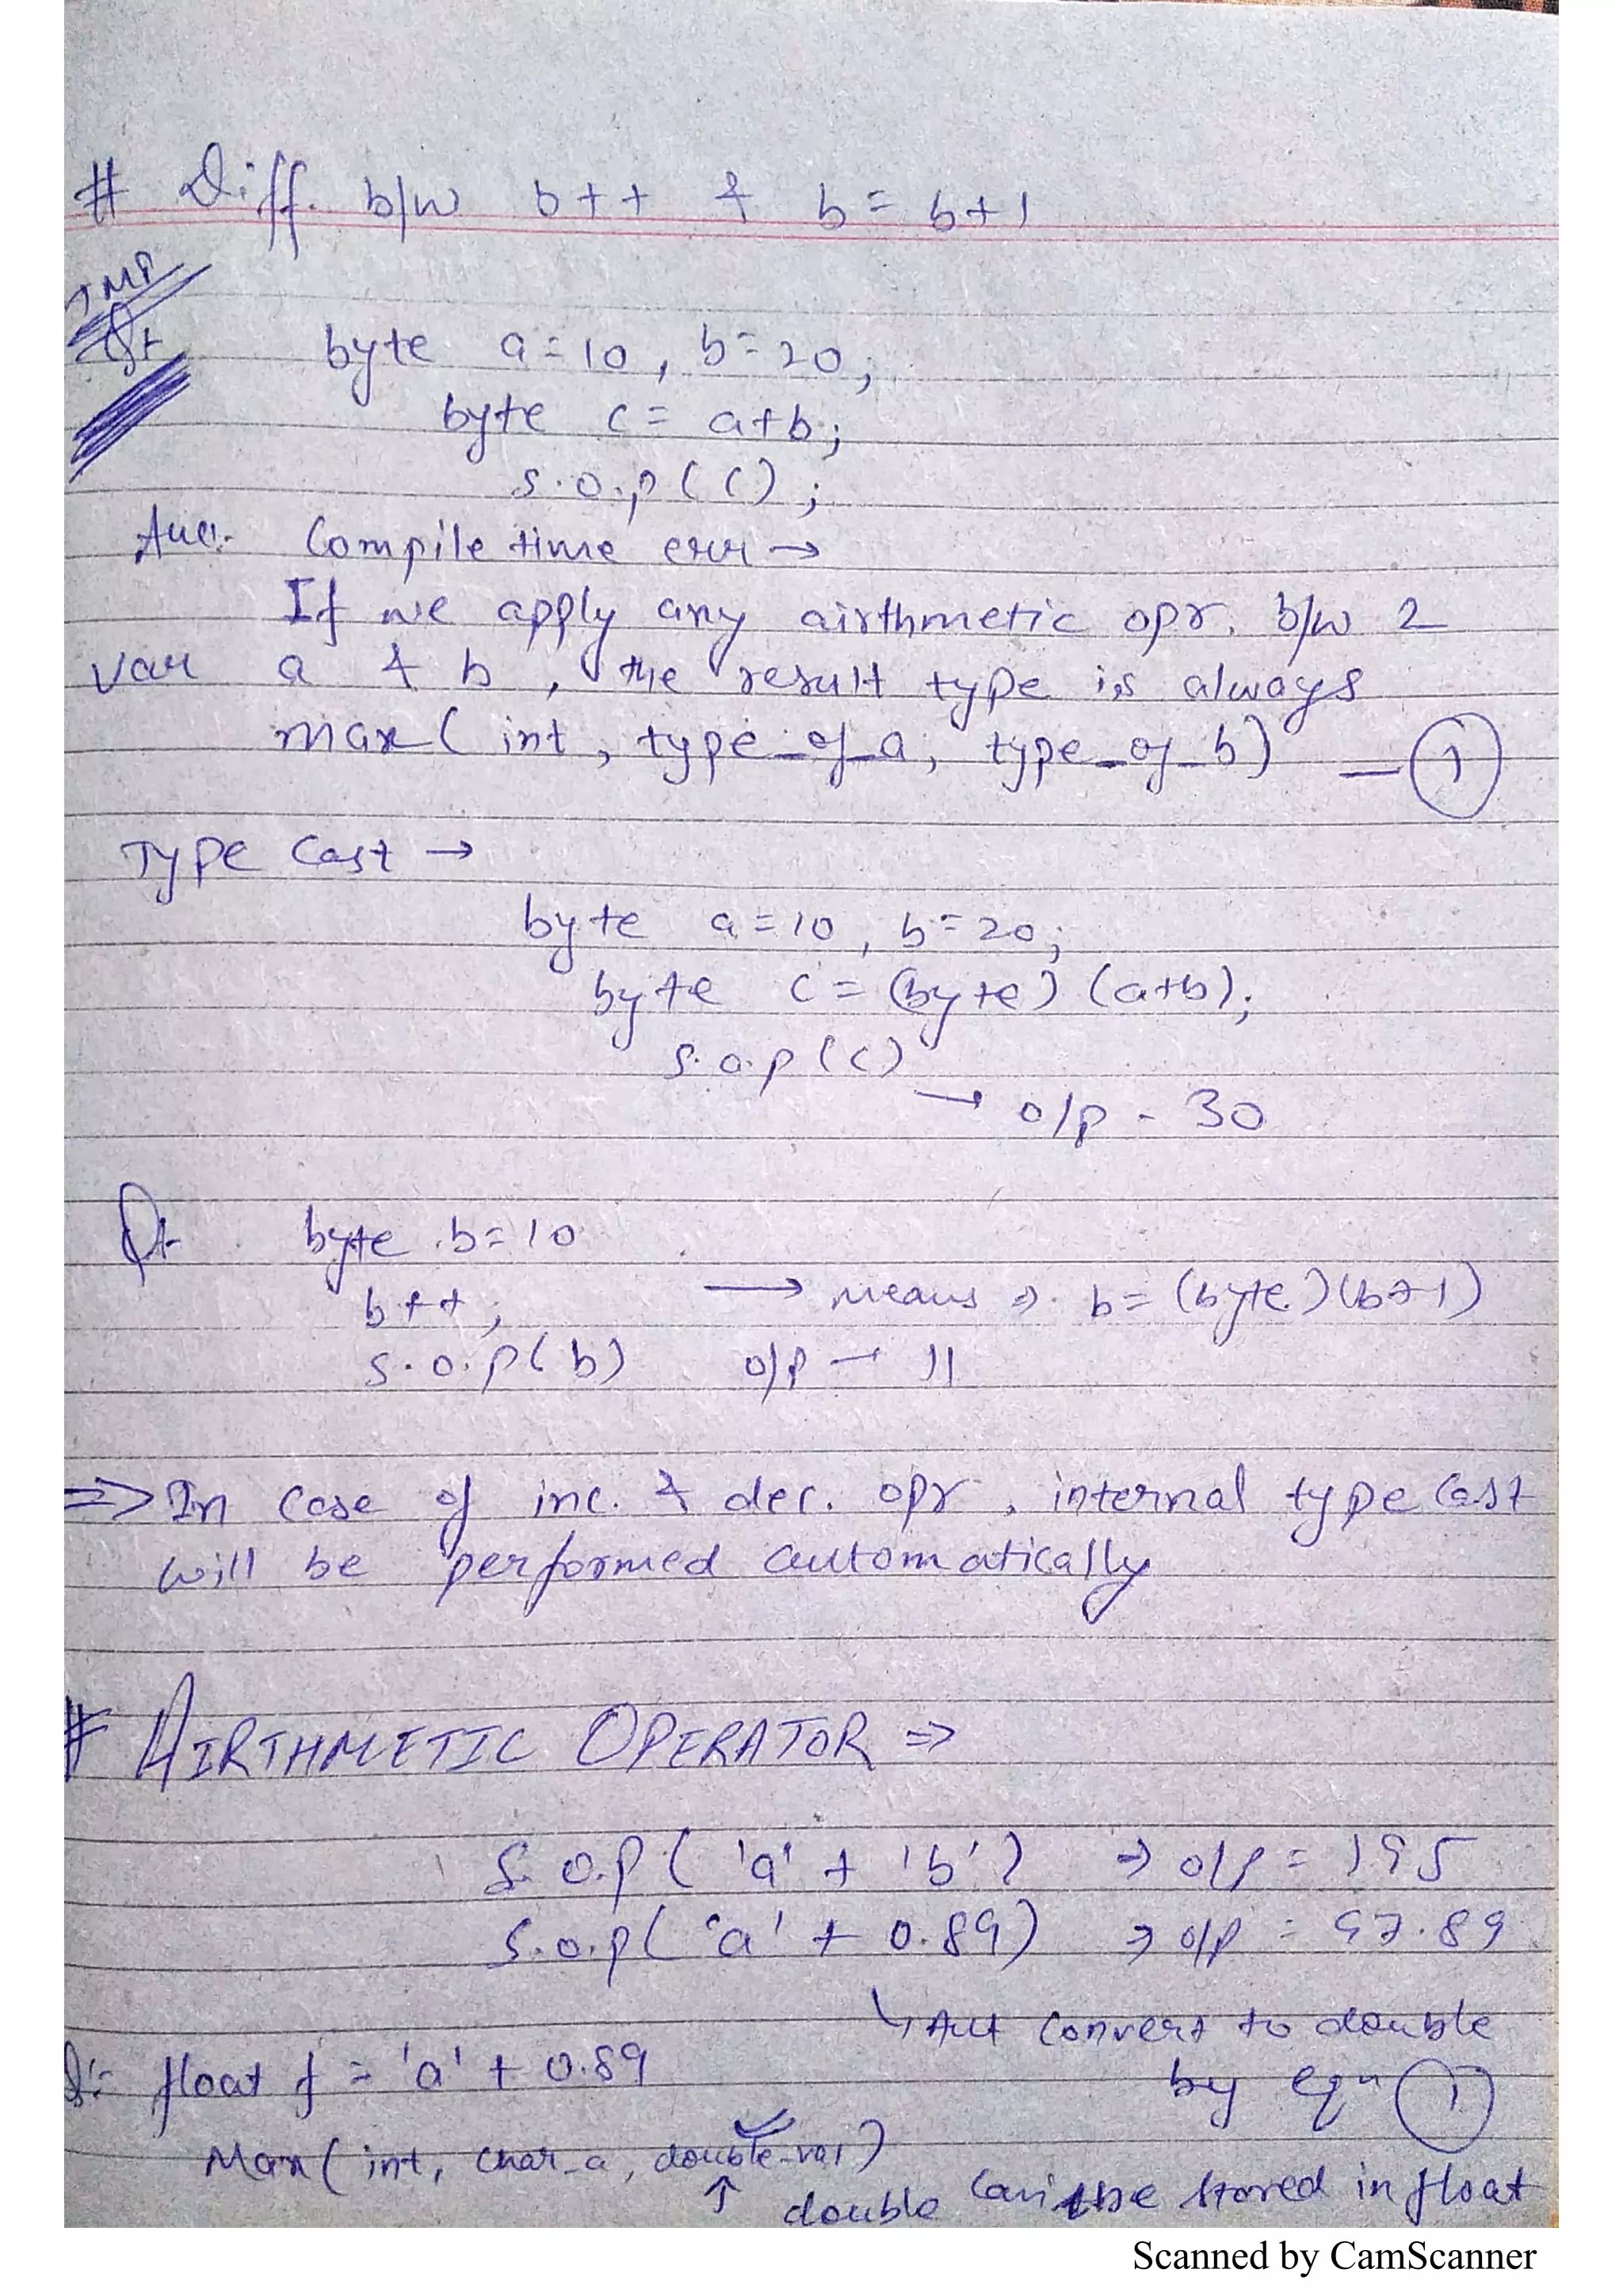 # Diff. b/w b++ & b=b+1
IMP
Q:- byte a=10, b=20;
byte c= a+b;
S.o.p(c);
Ans:- Compile time err →
If we apply any airthmetic opr. b/w 2
var a & b, the result type is always
max( int, type_of_a, type_of_b) — 1
Type Cast →
byte a=10, b=20;
byte c= (byte) (a+b);
S.o.p(c)
→ o/p - 30
Q:- byte b=10
b++; → means ⇒ b= (byte)(b+1)
S.o.p(b) o/p → 11
⇒ In case of inc. & dec. opr, internal type cast
will be performed automatically
# AIRTHMETIC OPERATOR ⇒
S.o.p( 'a' + 'b') ⇒ o/p = 195
S.o.p( 'a' + 0.89) ⇒ o/p = 97.89
↳ convert to double
by eqn 1
Q:- float f = 'a' + 0.89
Max( int, char_a, double_val)
↑ double can't be stored in float
Scanned by CamScanner